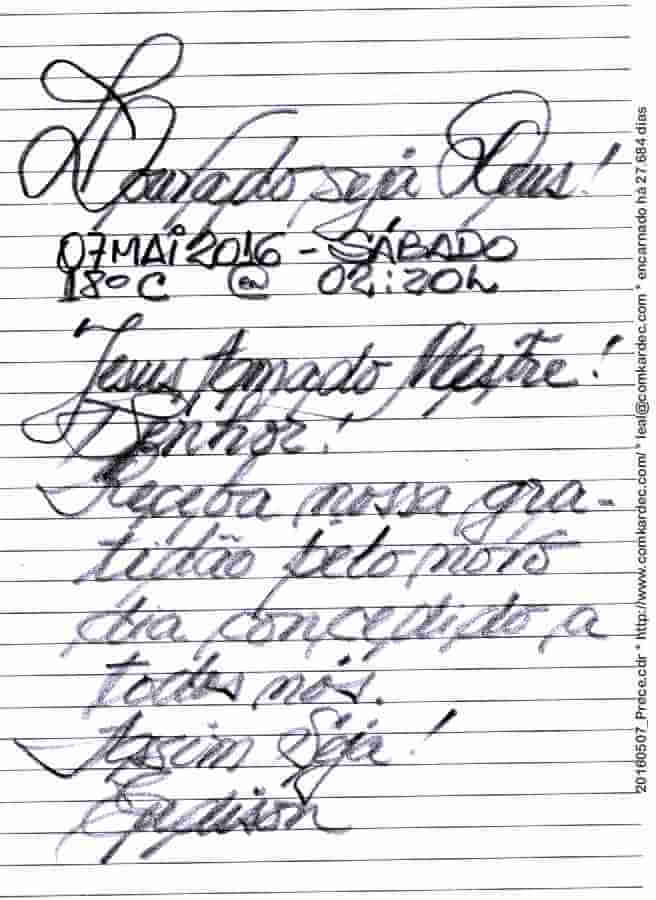 Louvado seja Deus!
07MAI2016 - SÁBADO
18ºC @ 02:20h
Jesus, Amado Mestre!
Senhor!
Receba nossa gra-
tidão pelo novo
dia concedido a
todos nós.
Assim Seja!
20160507_Prece.cdr * http://www.comkardec.com/ * leal@comkardec.com * encarnado há 27.684 dias